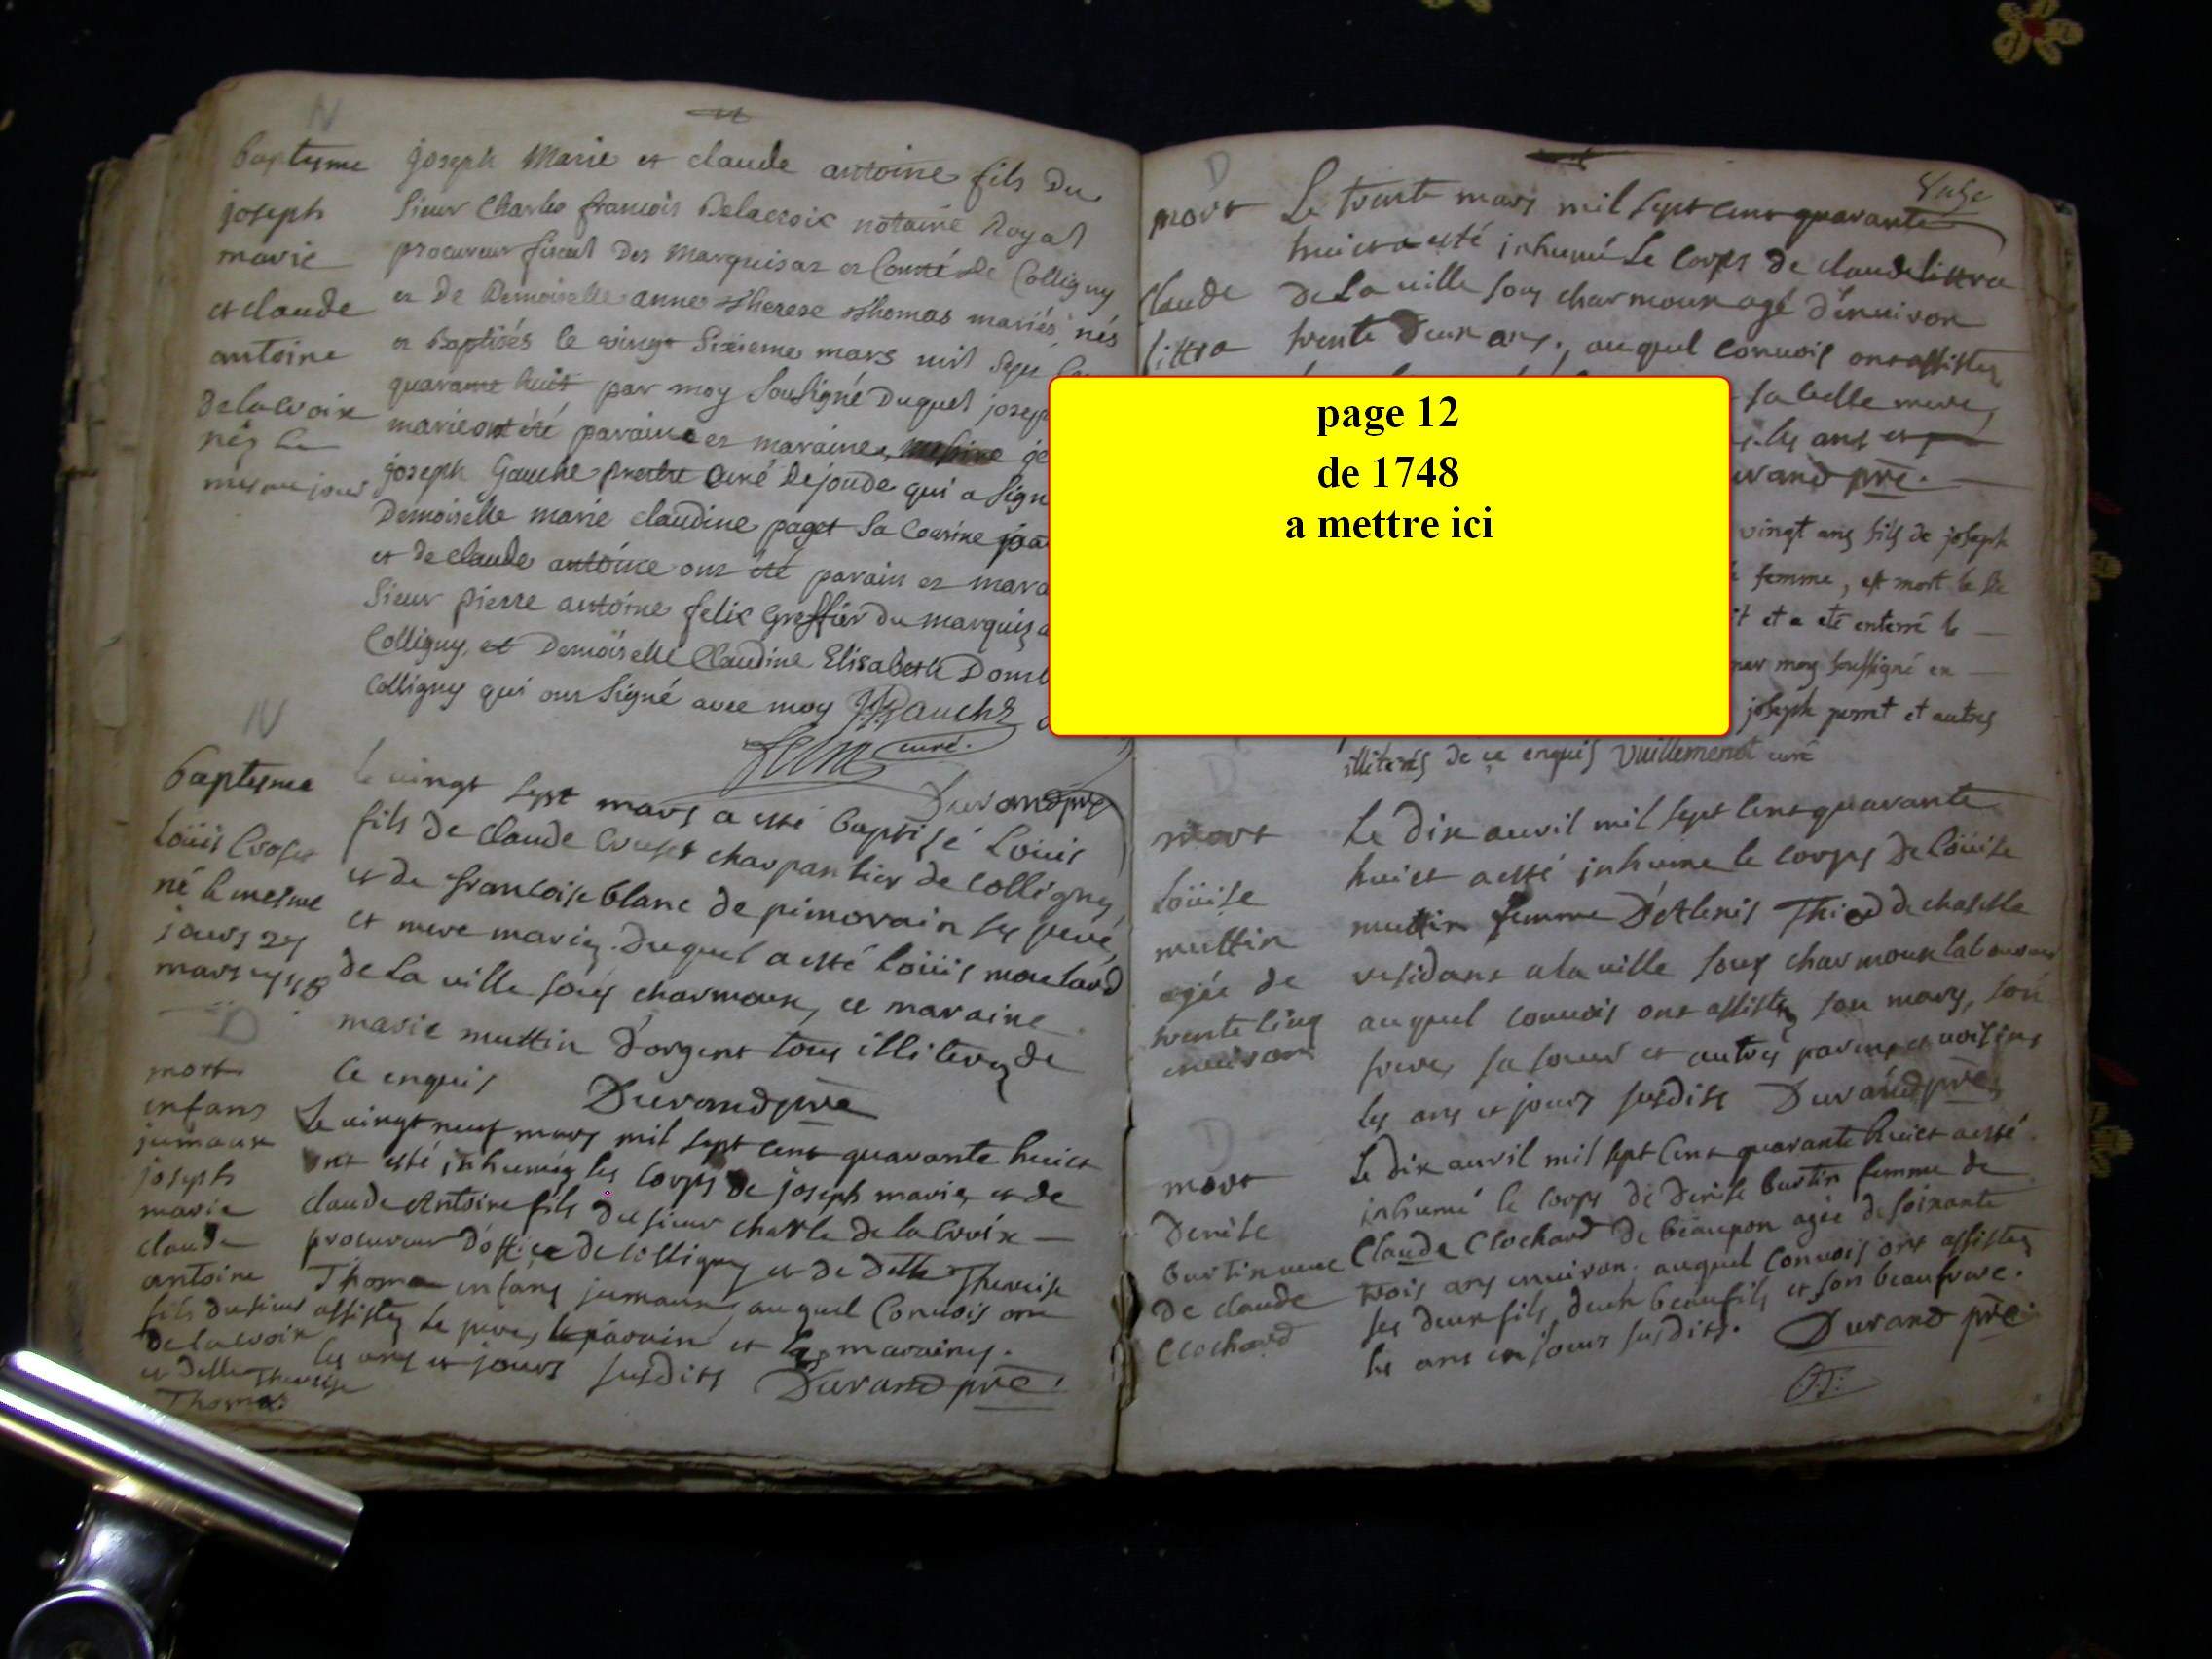 N
baptesme
joseph
marie
et claude
antoine
delacroix
nés le
mesme jour
joseph Marie et claude antoine fils Du
Sieur Charles françois Delacroix notaire Royal
procureur fiscal Des Marquisat et Comté De Colligny
et De Demoiselle anne Therese Thomas mariés, nés
et Baptisés le vingt Sixieme mars mil Sept
quarante huit par moy Soussigné Duquel joseph
marie ont été paraine et maraine
joseph Gauche prestre Curé De joude qui a Sign
Demoiselle marie claudine paget Sa Cousine
et de claude antoine ont été parain et mara
Sieur pierre antoine felix Greffier du marquisa
Colligny, et Demoiselle Claudine Elisabeth Domb
Colligny qui ont Signé avec moy Gauche
curé.
Durand pre
N
baptesme
Loüis
né le mesme
jours 27
mars 1748
le vingt sept mars a esté baptisé Loüis
fils de claude charpantier de colligny
et de francoise blanc de pimorain ses pere
et mere mariez. Duquel a esté Loüis moulard
de la ville sous charmoux, et maraine
marie muttin D'orgent tous illiterez de
ce enquis Durand pre
D
mort
enfans
jumaux
joseph
marie
claude
antoine
fils du sieur
de la croix
et delle Therese
Thomas
Le vingt neuf mars mil sept cent quarante huict
ont esté inhumez les corps de joseph marie et de
claude Antoine fils du sieur charle de la Croix
procureur d'office de Colligny et de delle Therese
Thomas enfans jumaux, auquel Convois ont
assistez le pere, le parain et les maraines.
les ans et jours susdits Durand pre
D
mort
Claude
littra
Le trente mars mil sept cent quarante
huict a esté inhumé Le corps de claude littra
de La ville sous charmoux agé d'enuiron
trente deux ans, auquel conuois ont assistez
sa belle mere,
les ans et
Durand pre.
vingt ans fils de joseph
femme, est mort le
et a eté enterré le
par moy soussigné en
joseph perret et autres
illiterés de ce enquis Vuillemenot curé
page 12
de 1748
a mettre ici
D
mort
Loüise
muttin
agée de
trente cinq
enuiron
Le dix auril mil sept cent quarante
huict a esté inhumé le corps de Loüise
muttin femme D'Alexis Thi de chaselle
residant a la ville sous charmoux laboureur
auquel conuois ont assistez son mary, son
frere, sa soeur et autres parens et voisins
les ans et jours susdits Durand pre
D
mort
Denise
burtin
De claude
Clochard
Le dix auril mil sept Cent quarante huict a esté
inhumé le corps de denise burtin femme de
Claude Clochard de beaupon agée de soixante
trois ans enuiron. auquel Conuois ont assistez
ses deux fils, deux beaufils et son beaufrere.
les ans et jours susdits. Durand pre